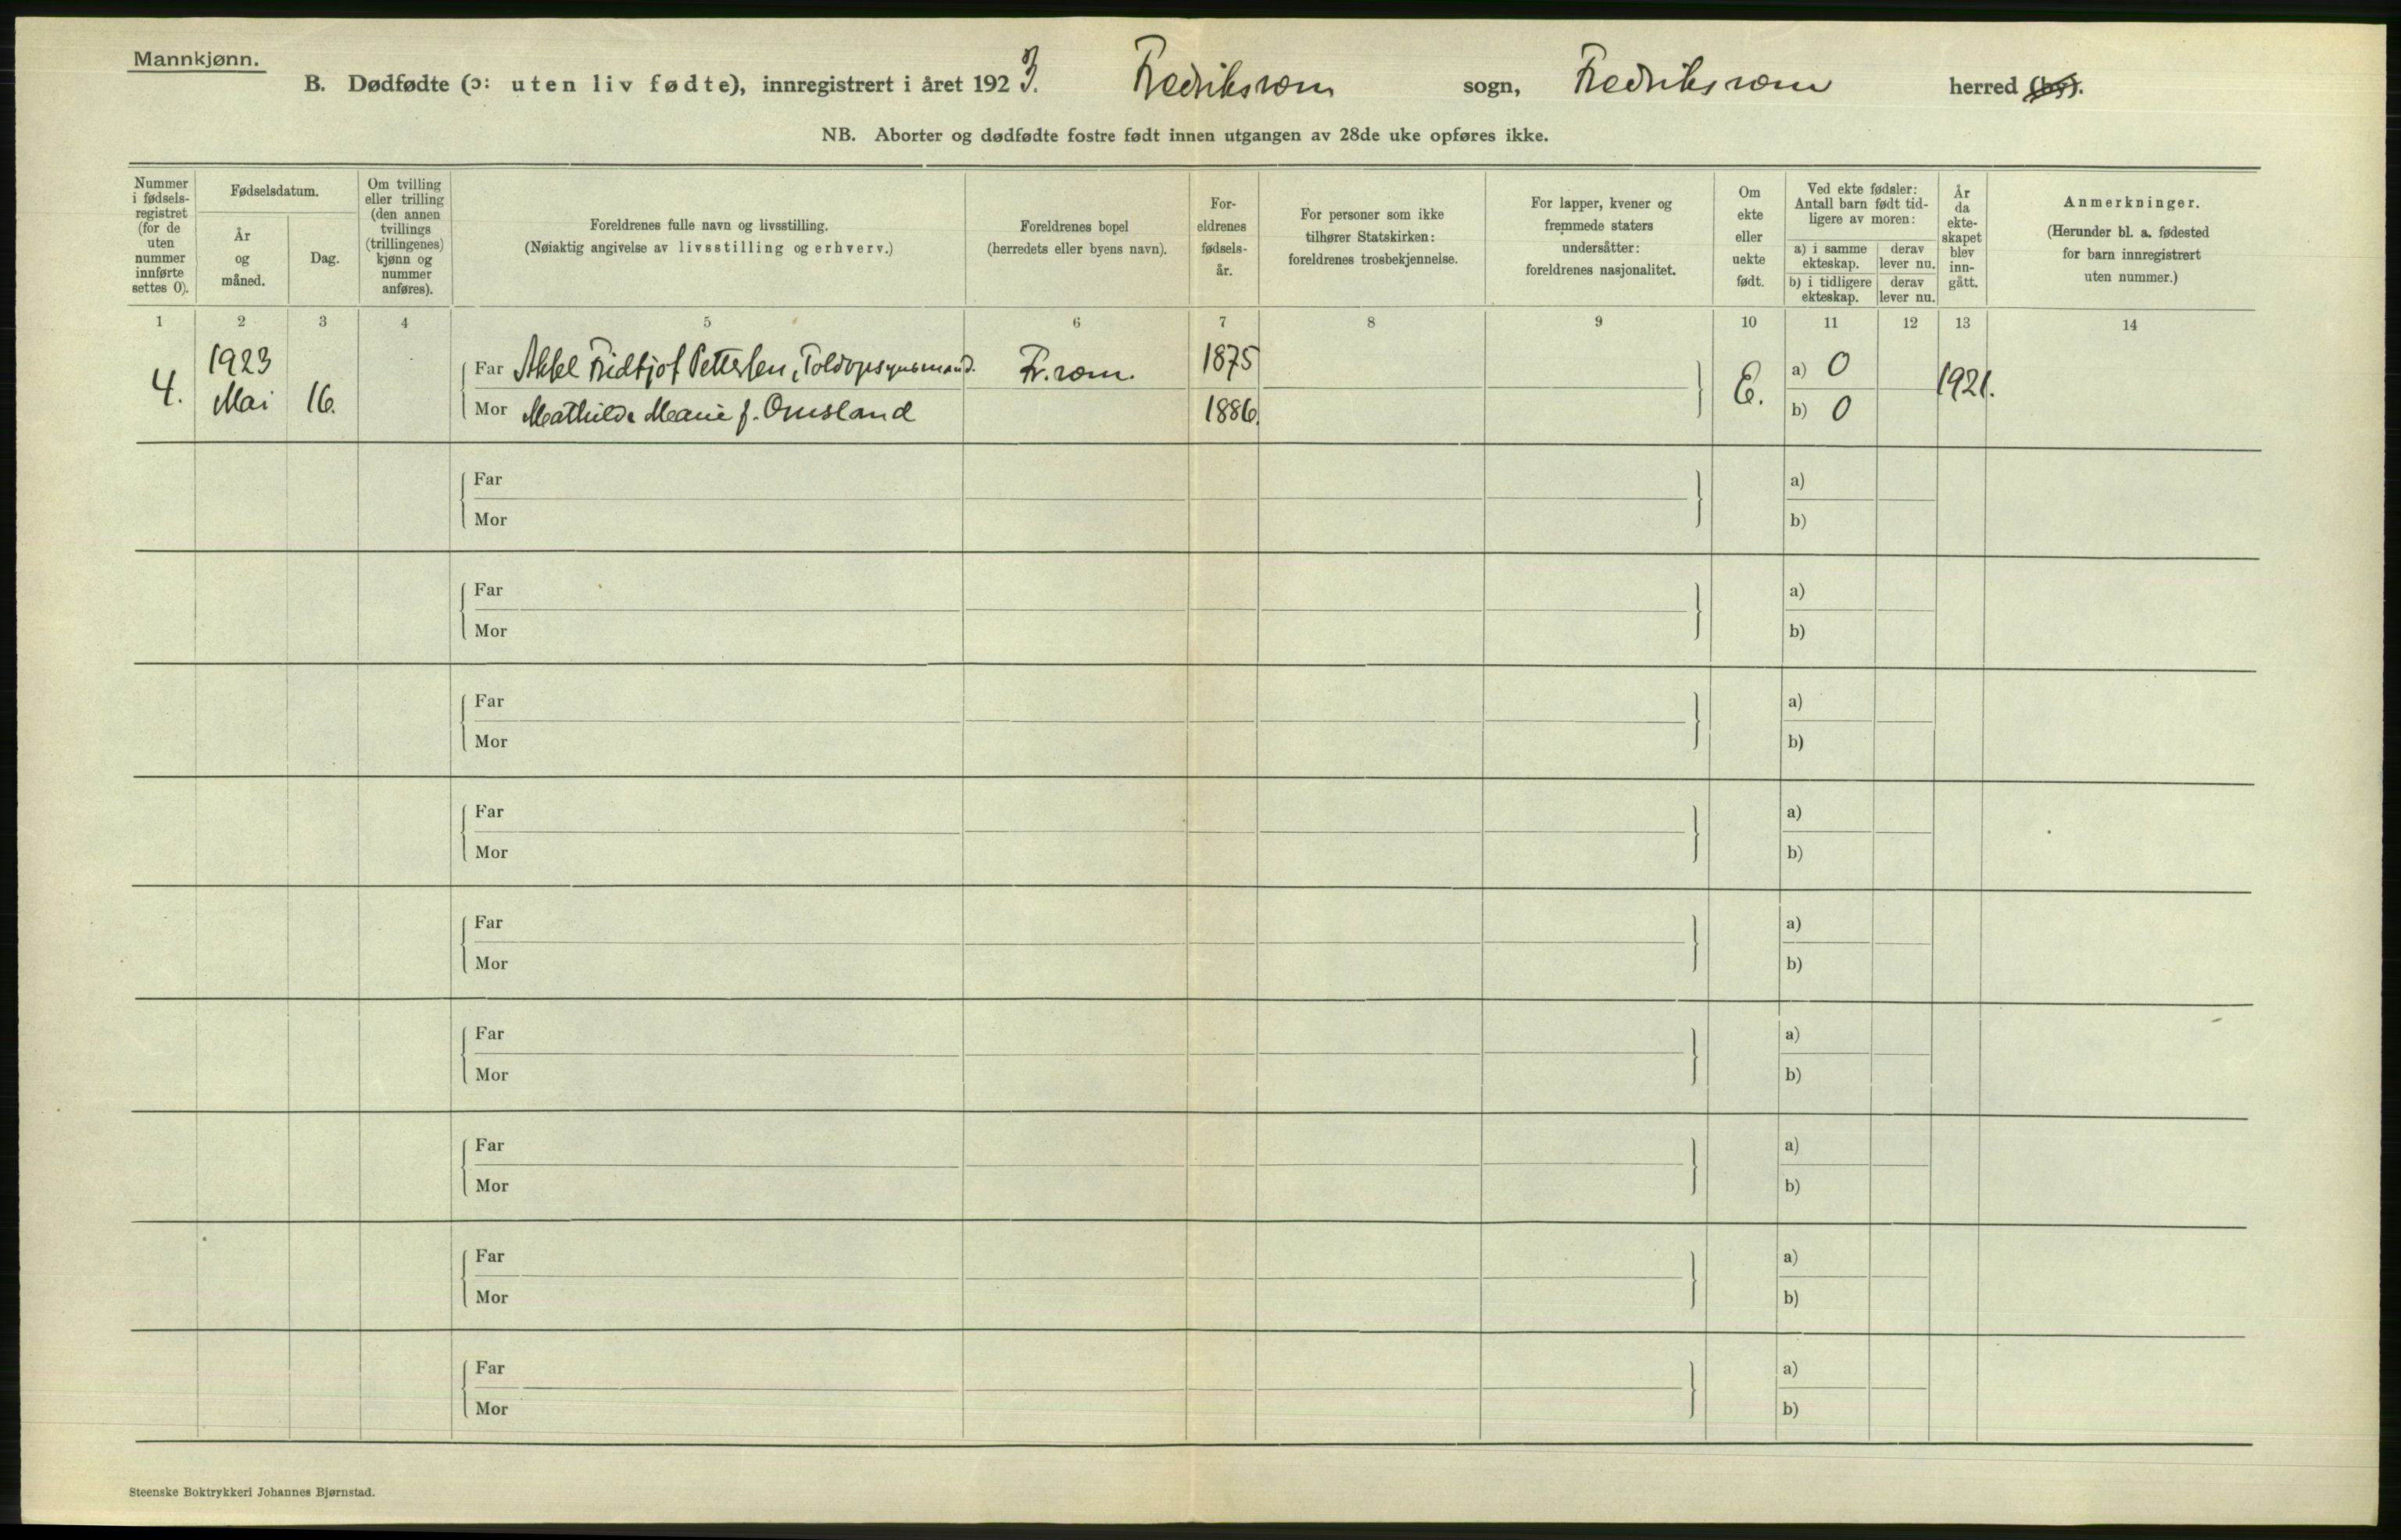 Mannkjønn.
B. Dødfødte (ɔ: uten liv fødte), innregistrert i året 1923. Fredriksvern sogn, Fredriksvern herred (by).
NB. Aborter og dødfødte fostre født innen utgangen av 28de uke opføres ikke.
Nummer i fødsels-registret (for de uten nummer innførte settes 0).
Fødselsdatum.
År og måned.
Dag.
Om tvilling eller trilling (den annen tvillings (trillingenes) kjønn og nummer anføres).
Foreldrenes fulle navn og livsstilling.
(Nøiaktig angivelse av livsstilling og erhverv.)
Foreldrenes bopel
(herredets eller byens navn).
For-eldrenes fødsels-år.
For personer som ikke tilhører Statskirken: foreldrenes trosbekjennelse.
For lapper, kvener og fremmede staters undersåtter: foreldrenes nasjonalitet.
Om ekte eller uekte født.
Ved ekte fødsler: Antall barn født tid-ligere av moren:
a) i samme ekteskap. derav lever nu.
b) i tidligere ekteskap. derav lever nu.
År da ekte-skapet blev inn-gått.
Anmerkninger.
(Herunder bl. a. fødested for barn innregistrert uten nummer.)
1 2 3 4 5 6 7 8 9 10 11 12 13 14
4. 1923 Mai 16. Far Aksel Fridtjof Pettersen, Toldopsynsmand. Fr.vern. 1875 E. a) 0 1921.
Mor Mathilde Marie f. Omsland 1886. b) 0
Far a)
Mor b)
Far a)
Mor b)
Far a)
Mor b)
Far a)
Mor b)
Far a)
Mor b)
Far a)
Mor b)
Far a)
Mor b)
Far a)
Mor b)
Far a)
Mor b)
Steenske Boktrykkeri Johannes Bjørnstad.